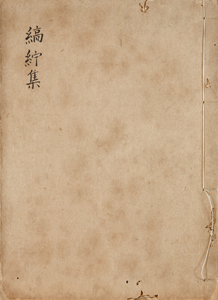 縞紵集